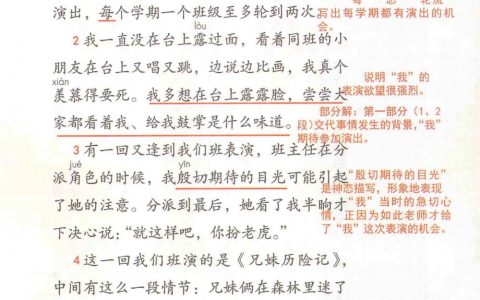 演出，每个学期一个班级至多轮到两次。
写出每学期都有演出的机
会。
lòu
2 我一直没在台上露过面，看着同班的小
朋友在台上又唱又跳，边说边比画，我真个
xiàn
羡慕得要死。我多想在台上露露脸，尝尝大
家都看着我、给我鼓掌是什么味道。
说明“我”的
表演欲望很强烈。
部分解：第一部分（1、2
段）交代事情发生的背景，“我”
期待参加演出。
3 有一回又逢到我们班表演，班主任在分
jué
yīn
派角色的时候，我殷切期待的目光可能引起
了她的注意。分派到最后，她看了我半晌才
下决心说：“就这样吧，你扮老虎。”
“殷切期待的目光”
是神态描写，形象地表现
了“我”当时的急切心
情，正因为如此老师才给
了“我”这次表演的机会。
4 这一回我们班演的是《兄妹历险记》，
中间有这么一段情节：兄妹俩在森林里迷了